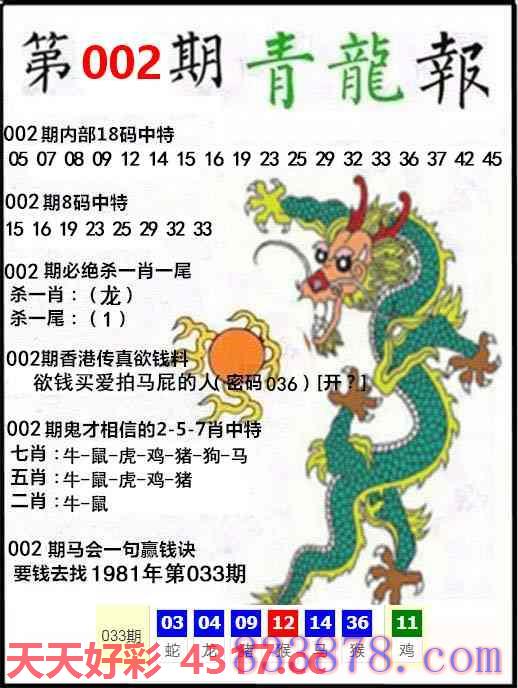 第002期青龍報
002期内部18码中特
05 07 08 09 12 14 15 16 19 23 25 29 32 33 36 37 42 45
002期8码中特
15 16 19 23 25 29 32 33
002期必绝杀一肖一尾
杀一肖：（龙）
杀一尾：（1）
002期香港传真欲钱料
欲钱买爱拍马屁的人（密码036）[开？]
002期鬼才相信的2-5-7肖中特
七肖：牛-鼠-虎-鸡-猪-狗-马
五肖：牛-鼠-虎-鸡-猪
二肖：牛-鼠
002期马会一句赢钱诀
要钱去找1981年第033期
033期 03 04 09 12 14 36 11
蛇 龙 猪 猴 马 猴 鸡
天天好彩 4317.cc
833878.com